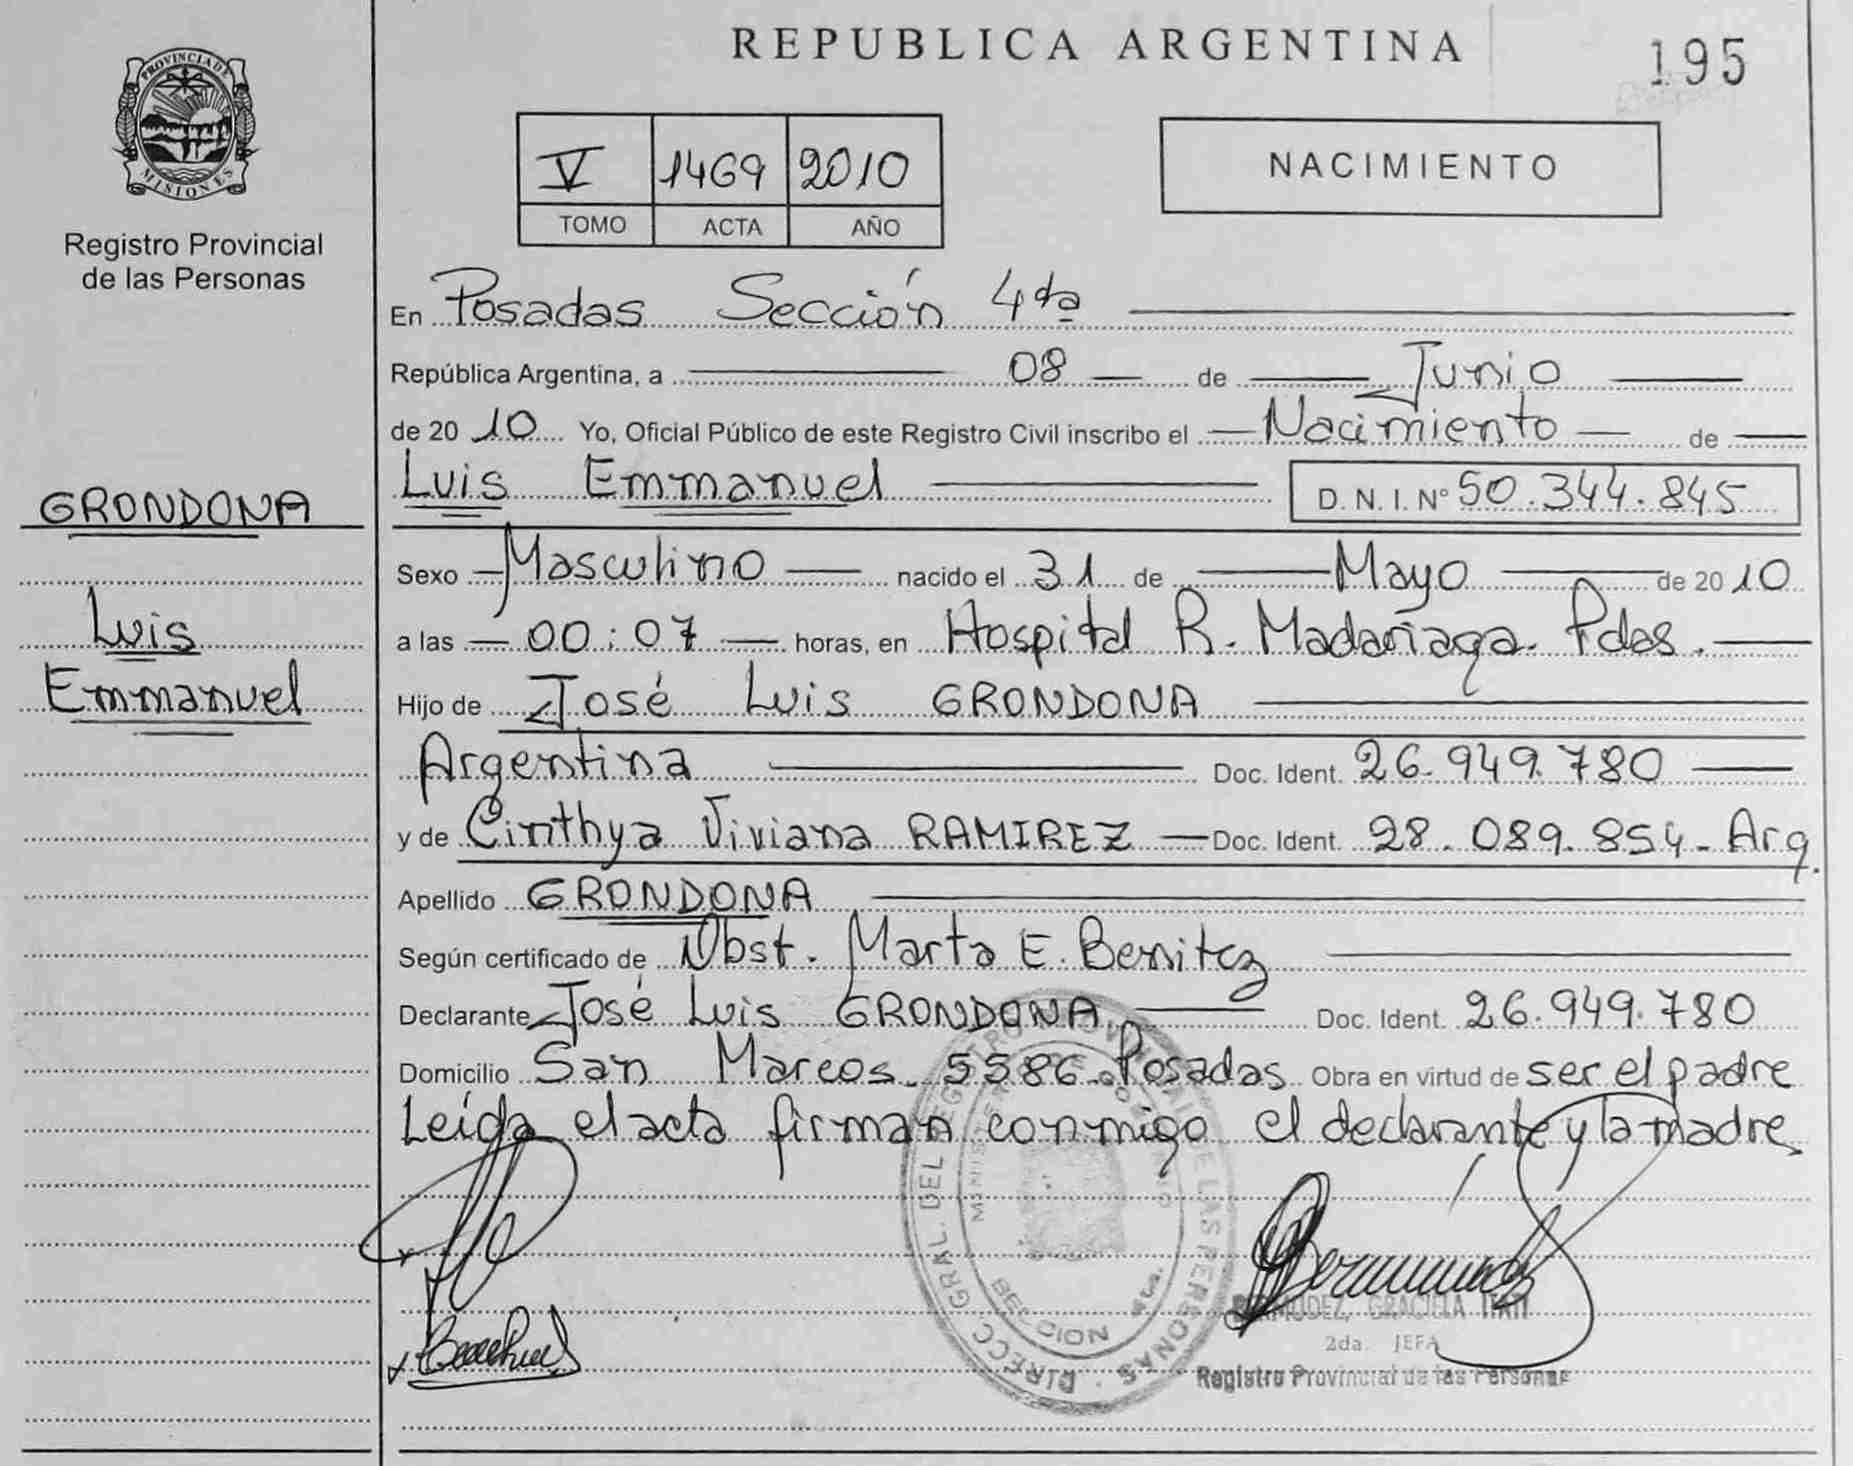 REPUBLICA ARGENTINA
195
PROVINCIA DE
MISIONES
Registro Provincial
de las Personas
V 1469 2010
TOMO ACTA AÑO
NACIMIENTO
En Posadas Sección 4ta
República Argentina, a 08 de Junio
de 2010 Yo, Oficial Público de este Registro Civil inscribo el Nacimiento de
Luis Emmanuel D. N. I. Nº 50.344.845
GRONDONA
Luis
Emmanuel
Sexo Masculino nacido el 31 de Mayo de 2010
a las 00:07 horas, en Hospital R. Madariaga. Pdas.
Hijo de José Luis GRONDONA
Argentina Doc. Ident. 26.949.780
y de Cinthya Viviana RAMIREZ Doc. Ident. 28.089.854 - Arg.
Apellido GRONDONA
Según certificado de Obst. Marta E. Benitez
Declarante José Luis GRONDONA Doc. Ident. 26.949.780
Domicilio San Marcos 5586 Posadas Obra en virtud de ser el padre
Leída el acta firman conmigo el declarante y la madre
DIRECC. GRAL. DEL REGISTRO PROVINCIAL DE LAS PERSONAS
BERMUDEZ, GRACIELA ITATI
2da. JEFA
Registro Provincial de las Personas